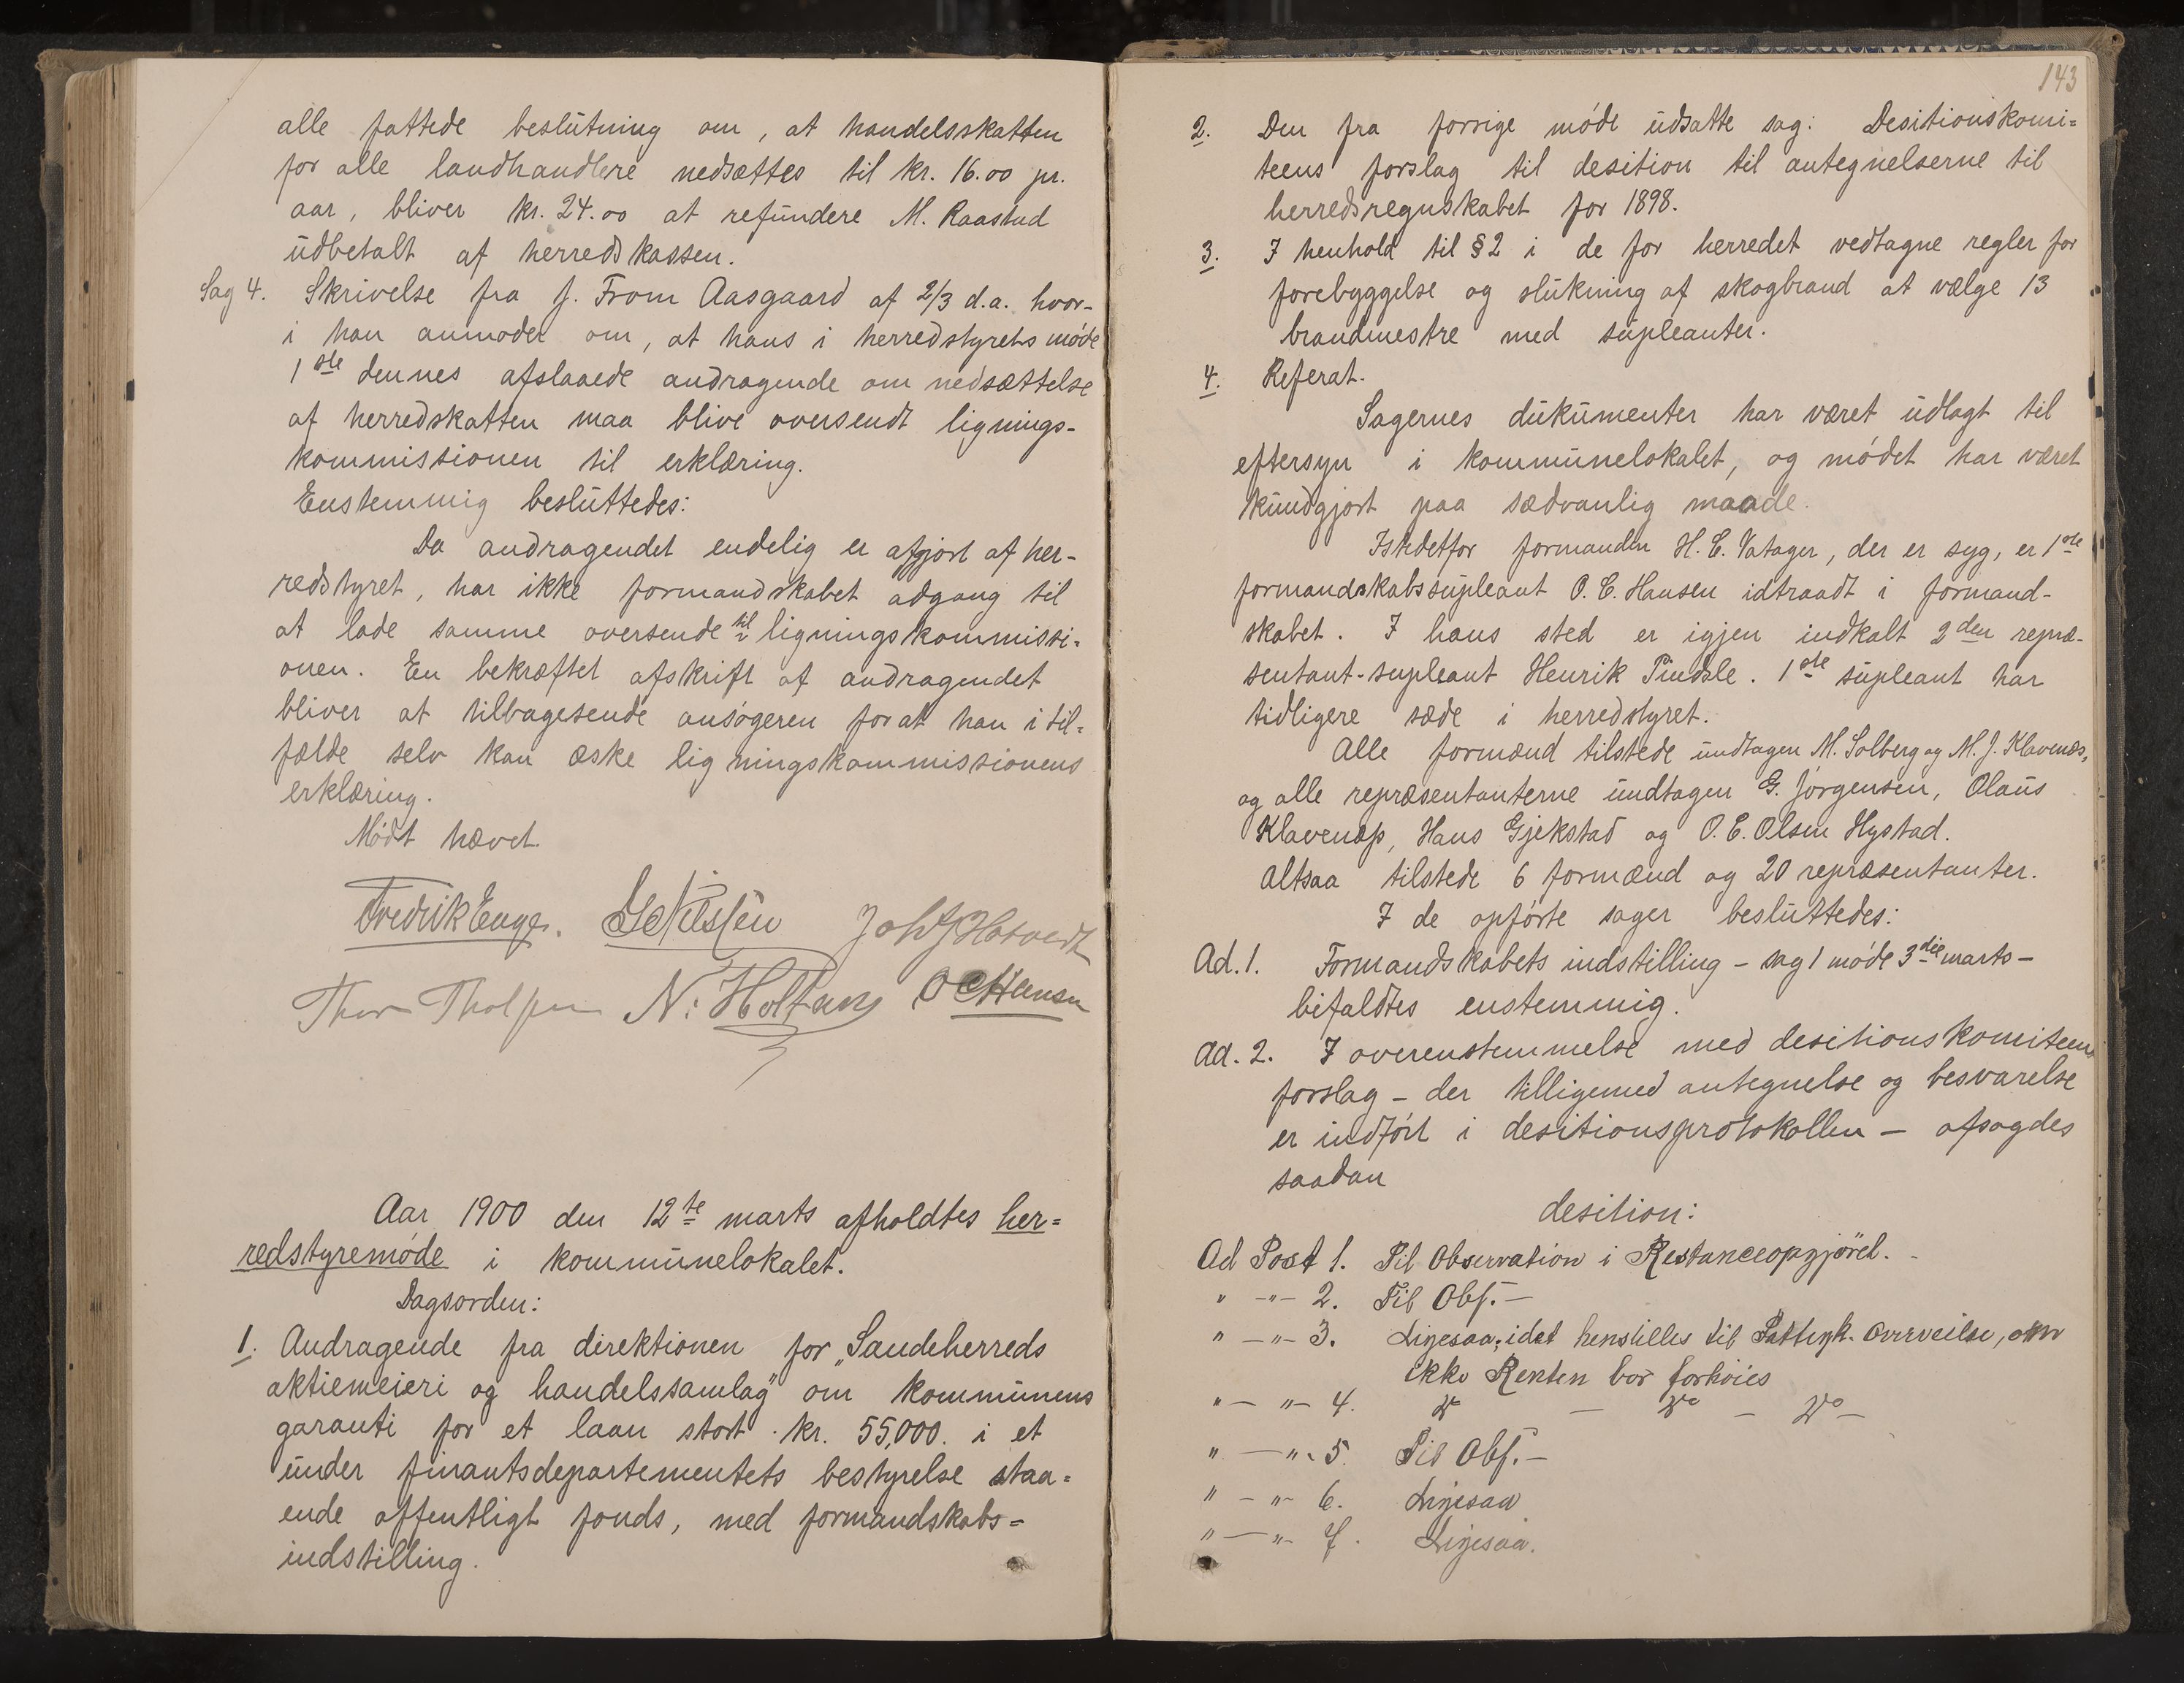 alle fattede beslutning om, at handelsskatten
for alle landhandlere nedsættes til kr. 16.00 pr.
aar, bliver kr. 24.00 at refundere M. Raastad
udbetalt af herredskassen.
Sag 4. Skrivelse fra J. From Aasgaard af 2/3 d.a. hvor-
i han anmoder om, at hans i herredstyrets møde
1ste dennes afslaaede andragende om nedsættelse
af herredskatten maa blive oversendt lignings-
kommissionen til erklæring.
Enstemmig besluttedes:
Da andragendet endelig er afgjort af her-
redstyret, har ikke formandskabet adgang til
at lade samme oversende til ligningskommissi=
onen. En bekræftet afskrift af andragendet
bliver at tilbagesende ansøgeren for at han i til=
fælde selv kan æske ligningskommissionens
erklæring.
Mødt hævet.
Fredrik Enger.
Thor Tholfsen N. Holtan O C Hansen
Aar 1900 den 12te marts afholdtes her=
redstyremøde i kommunelokalet.
Dagsorden:
1. Andragende fra direktionen for „Sandeherreds
aktiemeieri og handelssamlag" om kommunens
garanti for et laan stort kr. 55,000. i et
under finantsdepartementets bestyrelse staa=
ende offentligt fonds, med formandskabs=
indstilling.
143
2. Den fra forrige møde udsatte sag: Desitionskomi=
teens forslag til desition til antegnelserne til
herredsregnskabet for 1898.
3. I henhold til § 2 i de for herredet vedtagne regler for
forebyggelse og slukning af skogbrand at vælge 13
brandmestre med supleanter.
4. Referat.
Sagernes dukumenter har været udlagt til
eftersyn i kommunelokalet, og mødet har været
kundgjort paa sædvanlig maade.
Istedetfor formanden H. C. Vatager, der er syg, er 1ste
formandskabssupleant O. C. Hansen idtraadt i formand-
skabet. I hans sted er igjen indkalt 2den repræ-
sentant-supleant Henrik Pindsle. 1ste supleant har
tidligere sæde i herredstyret.
Alle formænd tilstede undtagen M. Solberg og M. J. Klavenæs,
og alle repræsentanterne undtagen G. Jørgensen, Olaus
Klavenæs, Hans Gjekstad og O. E. Olsen Hystad.
Altsaa tilstede 6 formænd og 20 repræsentanter.
I de opførte sager besluttedes:
Ad. 1. Formandskabets indstilling – sag 1 møde 3die marts –
bifaldtes enstemmig.
Ad. 2. I overenstemmelse med desitionskomiteens
forslag – der tilligemed antegnelse og besvarelse
er indført i desitionsprotokollen – afsagdes
saadan
desition:
Ad Post 1. Til Observation i Restanceopgjöret. -
" -"- 2. Til Obs. –
" –"– 3. Ligesaa; idet henstilles til Fattigk. Overveilse, om
ikke Renten bør forhöies
" – "– 4. Do – Do – Do –
" –"- 5. Til Obs. –
" – "- 6. Ligesaa
" –"- 7. Ligesaa.